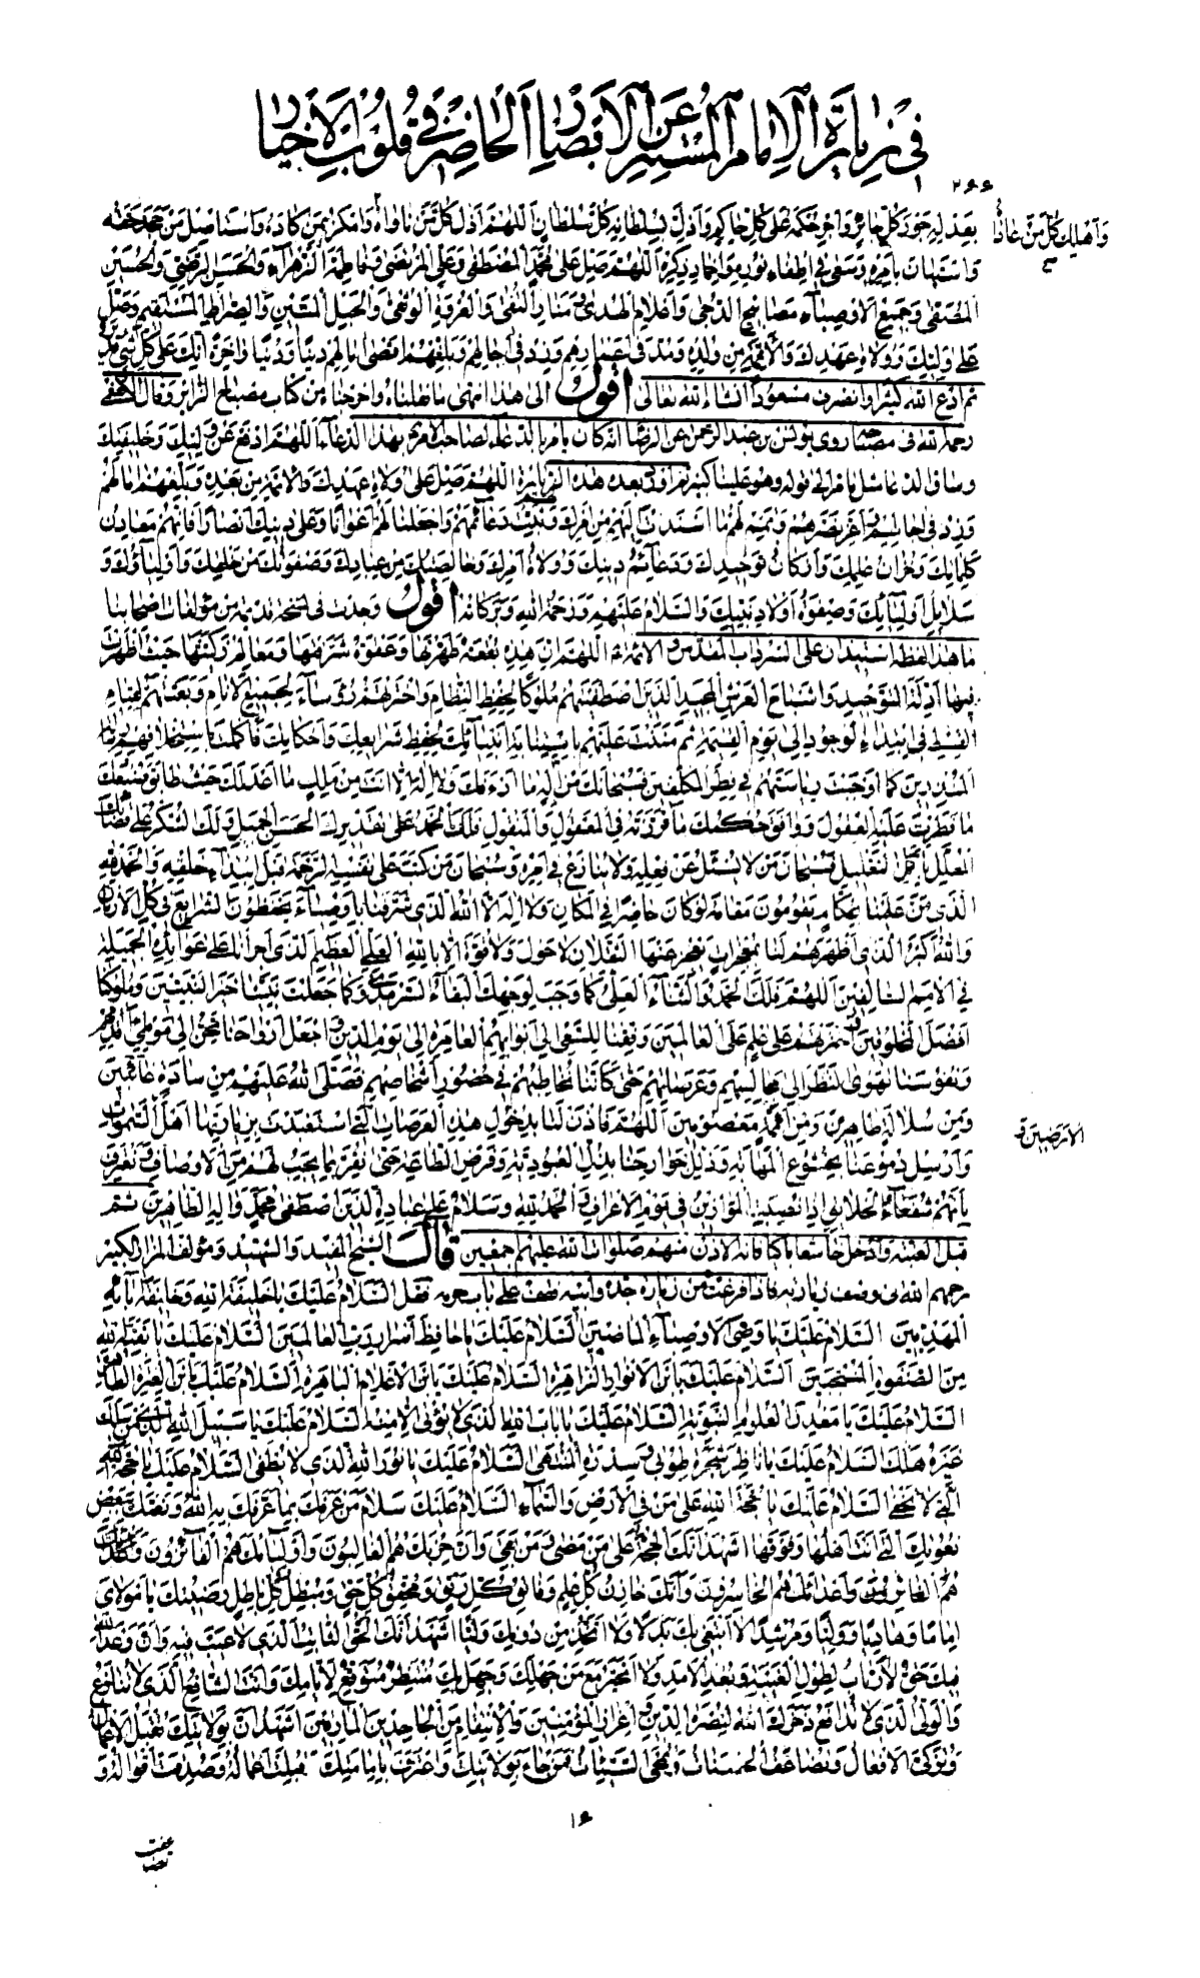 في زيارة الإمام المستتر عن الأبصار الحاضر في قلوب الأخيار
٢٦٦
بعدله جور كل جائر واجر حكمه على كل حاكم واذل بسلطانه كل سلطان اللهم اذل كل من ناواه وامكر بمن كاده واستأصل من جحد حقه
واهلك كل من عاداه
واستهان بأمره وسعى في إطفاء نوره واخماد ذكره اللهم صل على محمد المصطفى وعلي المرتضى وفاطمة الزهراء والحسن الرضي والحسين
المصفى وجميع الاوصياء مصابيح الدجى واعلام الهدى ومنار التقى والعروة الوثقى والحبل المتين والصراط المستقيم وصل
على وليك وولاة عهدك والائمة من ولده ومد في اعمارهم وزد في آجالهم وبلغهم اقصى آمالهم دينا ودنيا وآخرة انك على كل شئ قدير
ثم ادع الله كثيرا وانصرف مسعودا انشاء الله تعالى اقول الى هذا انتهى ما نقلناه واخرجنا من كتاب مصباح الزائر وقال الكفعمي
رحمه الله في مصباحه روى يونس بن عبد الرحمن عن الرضا انه كان يأمر بالدعاء لصاحب الامر بهذا الدعاء اللهم ادفع عن وليك وخليفتك
وساق الدعاء مثل ما مر الى قوله وهو علينا كبير ثم اورد بعده هذه الزيارة اللهم صل على ولاة عهدك والائمة من بعده وبلغهم آمالهم
وزد في آجالهم واعز نصرهم وتمم لهم ما اسندت اليهم من امرك وثبت دعائمهم واجعلنا لهم اعوانا وعلى دينك انصارا فانهم معادن
كلماتك وخزان علمك واركان توحيدك ودعائم دينك وولاة امرك وخالصتك من عبادك وصفوتك من خلقك واولياؤك و
سلائل اوليائك وصفوة اولاد نبيك والسلام عليهم ورحمة الله وبركاته اقول وجدت في نسخة قديمة من مؤلفات اصحابنا
ما هذا لفظه استيذان على السرداب المقدس والائمة اللهم ان هذه بقعة طهرتها وعقوة شرفتها ومعالم زكيتها حيث اظهرت
فيها ادلة التوحيد واشباح العرش المجيد الذين اصطفيتهم ملوكا لحفظ النظام واخترتهم رؤساء لجميع الانام وبعثتهم لقيام
القسط في ابتداء الوجود الى يوم القيمة ثم مننت عليهم باستنابة انبيائك لحفظ شرايعك واحكامك فاكملت باستخلافهم رسالة
المنذرين كما اوجبت رياستهم في فطر المكلفين فسبحانك من اله ما ارأفك ولا اله الا انت من ملك ما اعدلك حيث طابق صنعك
ما فطرت عليه العقول ووافق حكمك ما قررته في المعقول والمنقول فلك الحمد على تقديرك الحسن الجميل ولك الشكر على قضائك
المعلل باكمل التعليل فسبحان من لا يسئل عن فعله ولا ينازع في امره وسبحان من كتب على نفسه الرحمة قبل ابتداء خلقه والحمد لله
الذي من علينا بحكام يقومون مقامه لو كان حاضرا في المكان ولا اله الا الله الذي شرفنا باوصياء يحفظون الشرايع في كل الازمان
والله اكبر الذي اظهرهم لنا بمعجزات يعجز عنها الثقلان لا حول ولا قوة الا بالله العلي العظيم الذي اجرانا على عوائده الجميلة
في الامم السالفين اللهم فلك الحمد والثناء العلي كما وجب لوجهك البقاء السرمدي وكما جعلت نبينا خير النبيين وملوكنا
افضل المخلوقين واخترتهم على علم على العالمين وفقنا للسعي الى ابوابهم العامرة الى يوم الدين واجعل ارواحنا تحن الى موطئ اقدامهم
ونفوسنا تهوى النظر الى مجالسهم وعرصاتهم حتى كأننا نخاطبهم في حضور اشخاصهم فصلى الله عليهم من سادة غائبين
ومن سلالة طاهرين ومن ائمة معصومين اللهم فاذن لنا بدخول هذه العرصات التي استعبدت بزيارتها اهل السموات
و الارضين
وارسل دموعنا بخشوع المهابة وذلل جوارحنا بذل العبودية وفرض الطاعة حتى نقر بما يجب لهم من الاوصاف ونعترف
بأنهم شفعاء الخلائق اذا نصبت الموازين في يوم الاعراف والحمد لله وسلام على عباده الذين اصطفى محمد وآله الطاهرين ثم
قبل العتبة وادخل خاشعا باكيا فانه الاذن منهم صلوات الله عليهم اجمعين قال الشيخ المفيد والشهيد ومؤلف المزار الكبير
رحمهم الله في وصف زيارته فاذا فرغت من زيارة جده وابيه فقف على باب حرمه فقل السلام عليك يا خليفة الله وخليفة آبائه
المهديين السلام عليك يا وصي الاوصياء الماضين السلام عليك يا حافظ اسرار رب العالمين السلام عليك يا بقية الله
من الصفوة المنتجبين السلام عليك يابن الانوار الزاهرة السلام عليك يابن الاعلام الباهرة السلام عليك يابن العترة الطاهرة
السلام عليك يا معدن العلوم النبوية السلام عليك يا باب الله الذي لا يؤتى الا منه السلام عليك يا سبيل الله الذي من سلك
غيره هلك السلام عليك يا ناظر شجرة طوبى وسدرة المنتهى السلام عليك يا نور الله الذي لا يطفى السلام عليك يا حجة الله
التي لا تخفى السلام عليك يا حجة الله على من في الارض والسماء السلام عليك سلام من عرفك بما عرفك به الله ونعتك ببعض
نعوتك التي انت اهلها وفوقها اشهد انك الحجة على من مضى ومن بقي وان حزبك هم الغالبون واولياءك هم الفائزون واعداءك
هم الخاسرون وانك خازن كل علم وفاتق كل رتق ومحقق كل حق ومبطل كل باطل رضيتك يا مولاي
اماما وهاديا ووليا ومرشدا لا ابتغي بك بدلا ولا اتخذ من دونك وليا اشهد انك الحق الثابت الذي لا عيب فيه وان وعد الله
فيك حق لا ارتاب لطول الغيبة وبعد الامد ولا اتحير مع من جهلك وجهل بك منتظر متوقع لأيامك وانت الشافع الذي لا تنازع
والولي الذي لا تدافع ذخرك الله لنصرة الدين واعزاز المؤمنين والانتقام من الجاحدين المارقين اشهد ان بولايتك تقبل الاعمال
وتزكى الافعال وتضاعف الحسنات وتمحى السيئات فمن جاء بولايتك واعترف بامامتك قبلت اعماله وصدقت اقواله و
١٤